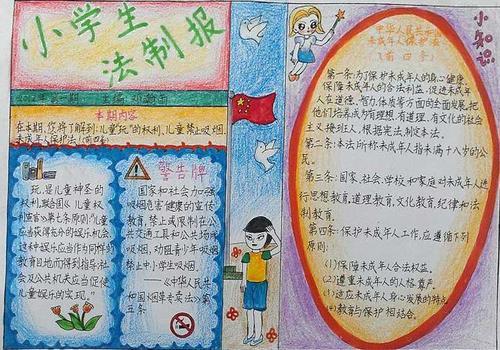 小学生
法制报
本期内容
在本期,您将了解到:儿童"玩"的权利、儿童禁止吸烟
未成年人保护法(前四条)
玩,是儿童神圣的
权利,联合国《儿童权
利宣言》第七条原则:"儿童
应有获得名外的娱乐机会,
这种娱乐应当作为同性的
教育目地而得到指导;社
会及公共机关应当促使
儿童娱乐的实现。"
警告牌
国家和社会加强
吸烟危害健康的宣传
教育,禁止或限制在公
共交通工具和公共场所
吸烟,劝阻青少年吸烟,
禁止中小学生吸烟。
——《中华人民共
和国烟草专卖法》第
五条
小知识
中华人民共和国
未成年人保护法
(前四条)
第一条:为了保护未成年人的身心健康,
保障未成年人的合法利益,促进未成年
人在道德、智力、体质等方面的全面发展,把
他们培养成为有理想、有道理、有文化的社会
主义接班人,根据宪法,制定本法。
第二条:本法所称未成年人指未满十八岁的公
民。
第三条:国家、社会、学校和家庭对未成年人进
行思想教育、道理教育、文化教育、纪律和法
制教育。
第四条:保护未成年人工作,应遵循下列
原则:
(1)保障未成年人合法权益。
(2)尊重未成年人的人格尊严。
(3)适应未成年人身心发展的特点
(4)教育与保护相结合。